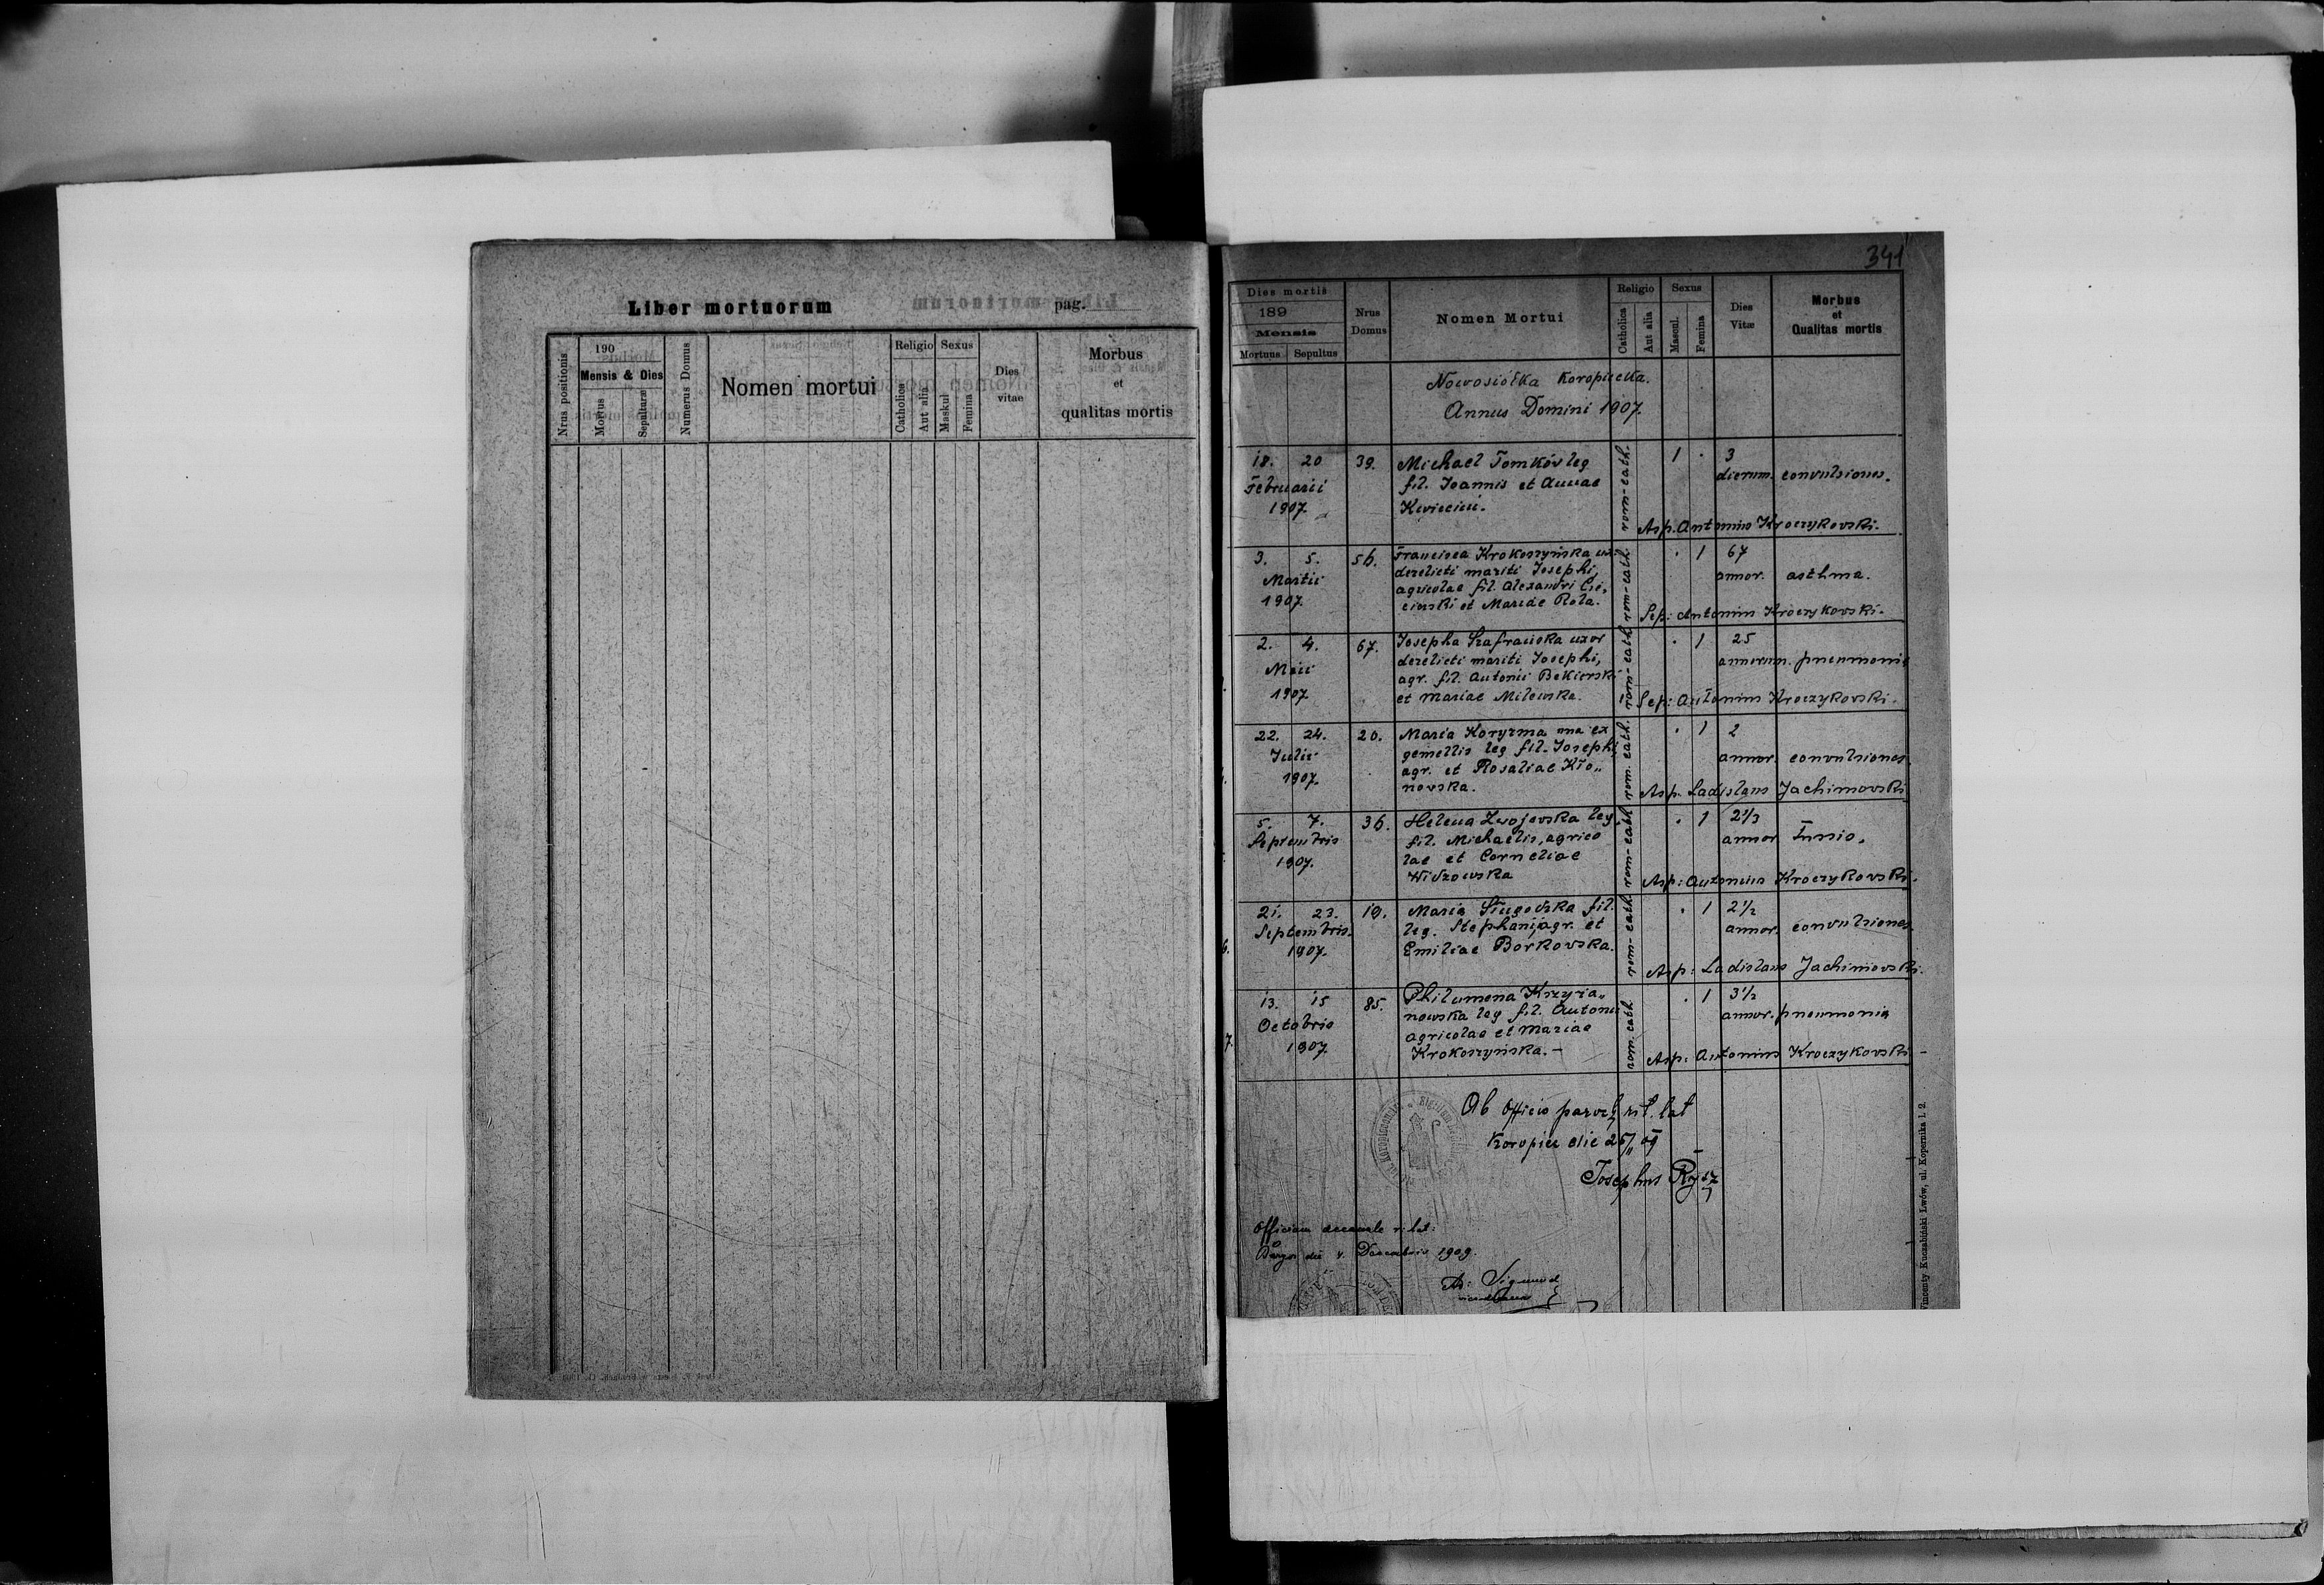 Liber mortuorum
pag.
Nrus positionis
190
Mensis & Dies
Mortus
Sepulturæ
Numerus Domus
Nomen mortui
Religio
Catholica
Aut alia
Sexus
Maskul
Femina
Dies
vitae
Morbus
et
qualitas mortis
341
Dies mortis
189
Mensis
Mortuus
Sepultus
Nrus
Domus
Nomen Mortui
Religio
Catholica
Aut alia
Sexus
Mascul.
Femina
Dies
Vitæ
Morbus
et
Qualitas mortis
Nowosiółka Koropiecka.
Annus Domini 1907.
18. 20 39. Michael Tomków leg 1 . 3
Februarii fil. Joannis et Annae dierum. convulsiones.
1907.
rom-cath.
Asp. Antonius Kroczykovski.
3. 5. 56. Francisca Krokoszyńska . 1 67
Martii derelicti mariti Josephi, annor. asthma.
1907. agricolae fil. Alexandri
et Mariae Rola.
rom-cath.
Sep: Antonius Kroczykovski.
2. 4. 67. Josepha Szafrańska uxor . 1 25
Maii derelicti mariti Josephi, annorum. pneumonia
1907 agr. fil. Antonii Bekierski
et Mariae Milewska.
rom-cath
Sep: Antonius Kroczykovski.
22. 24. 20. Maria Koryzma una ex . 1 2
Julii gemellis leg fil. Josephi, annor. convulsiones.
1907. agr. et Rosaliae Kło„
novska.
rom. cath.
Asp. Ladislaus Jachimovski
5. 7. 36. Helena Zwojevska leg. . 1 2 1/3
Septembris fil. Michaelis, agrico annor
1907. lae et Corneliae
Widzowska
rom-cath
Asp: Antonius Kroczykovski.
21. 23. 19. Maria fil. . 1 2 1/2
Septembris. leg. Stephani, agr. et annor. convulsiones.
1907. Emiliae Borkovska.
rom-cath
Asp: Ladislaus Jachimovski.
13. 15 85. Philomena Krzyża„ . 1 3 1/2
Octobris nowska leg fil. Antonii annor. pneumonia
1907. agricolae et Mariae
Krokoszyńska. -
rom. cath
Asp: Antonius Kroczykovski -
Ab officio paroch rit. lat
Koropiec die
Josephus
Officium decanale r. lat:
die 4. Decembris 1909.
Vincenty Kuczabiński Lwów, ul. Kopernika l. 2.